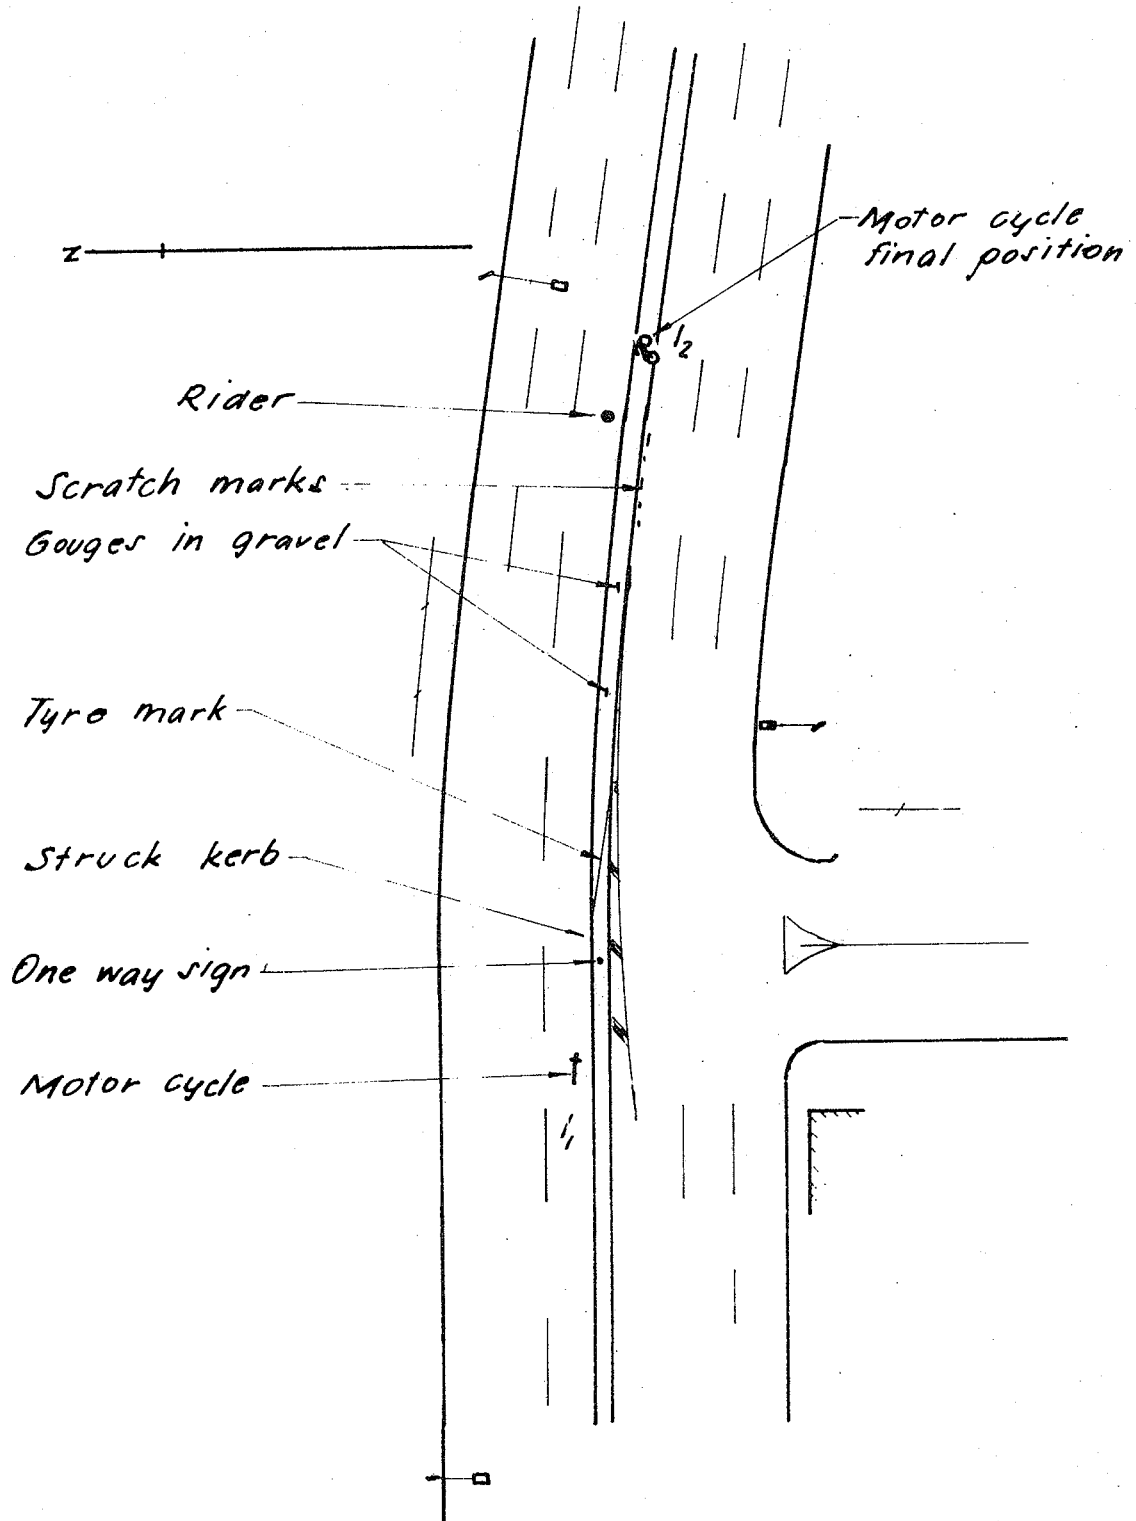 Motor cycle
final position
N
1/2
Rider
Scratch marks
Gouges in gravel
Tyre mark
Struck kerb
One way sign
Motor cycle
1/1